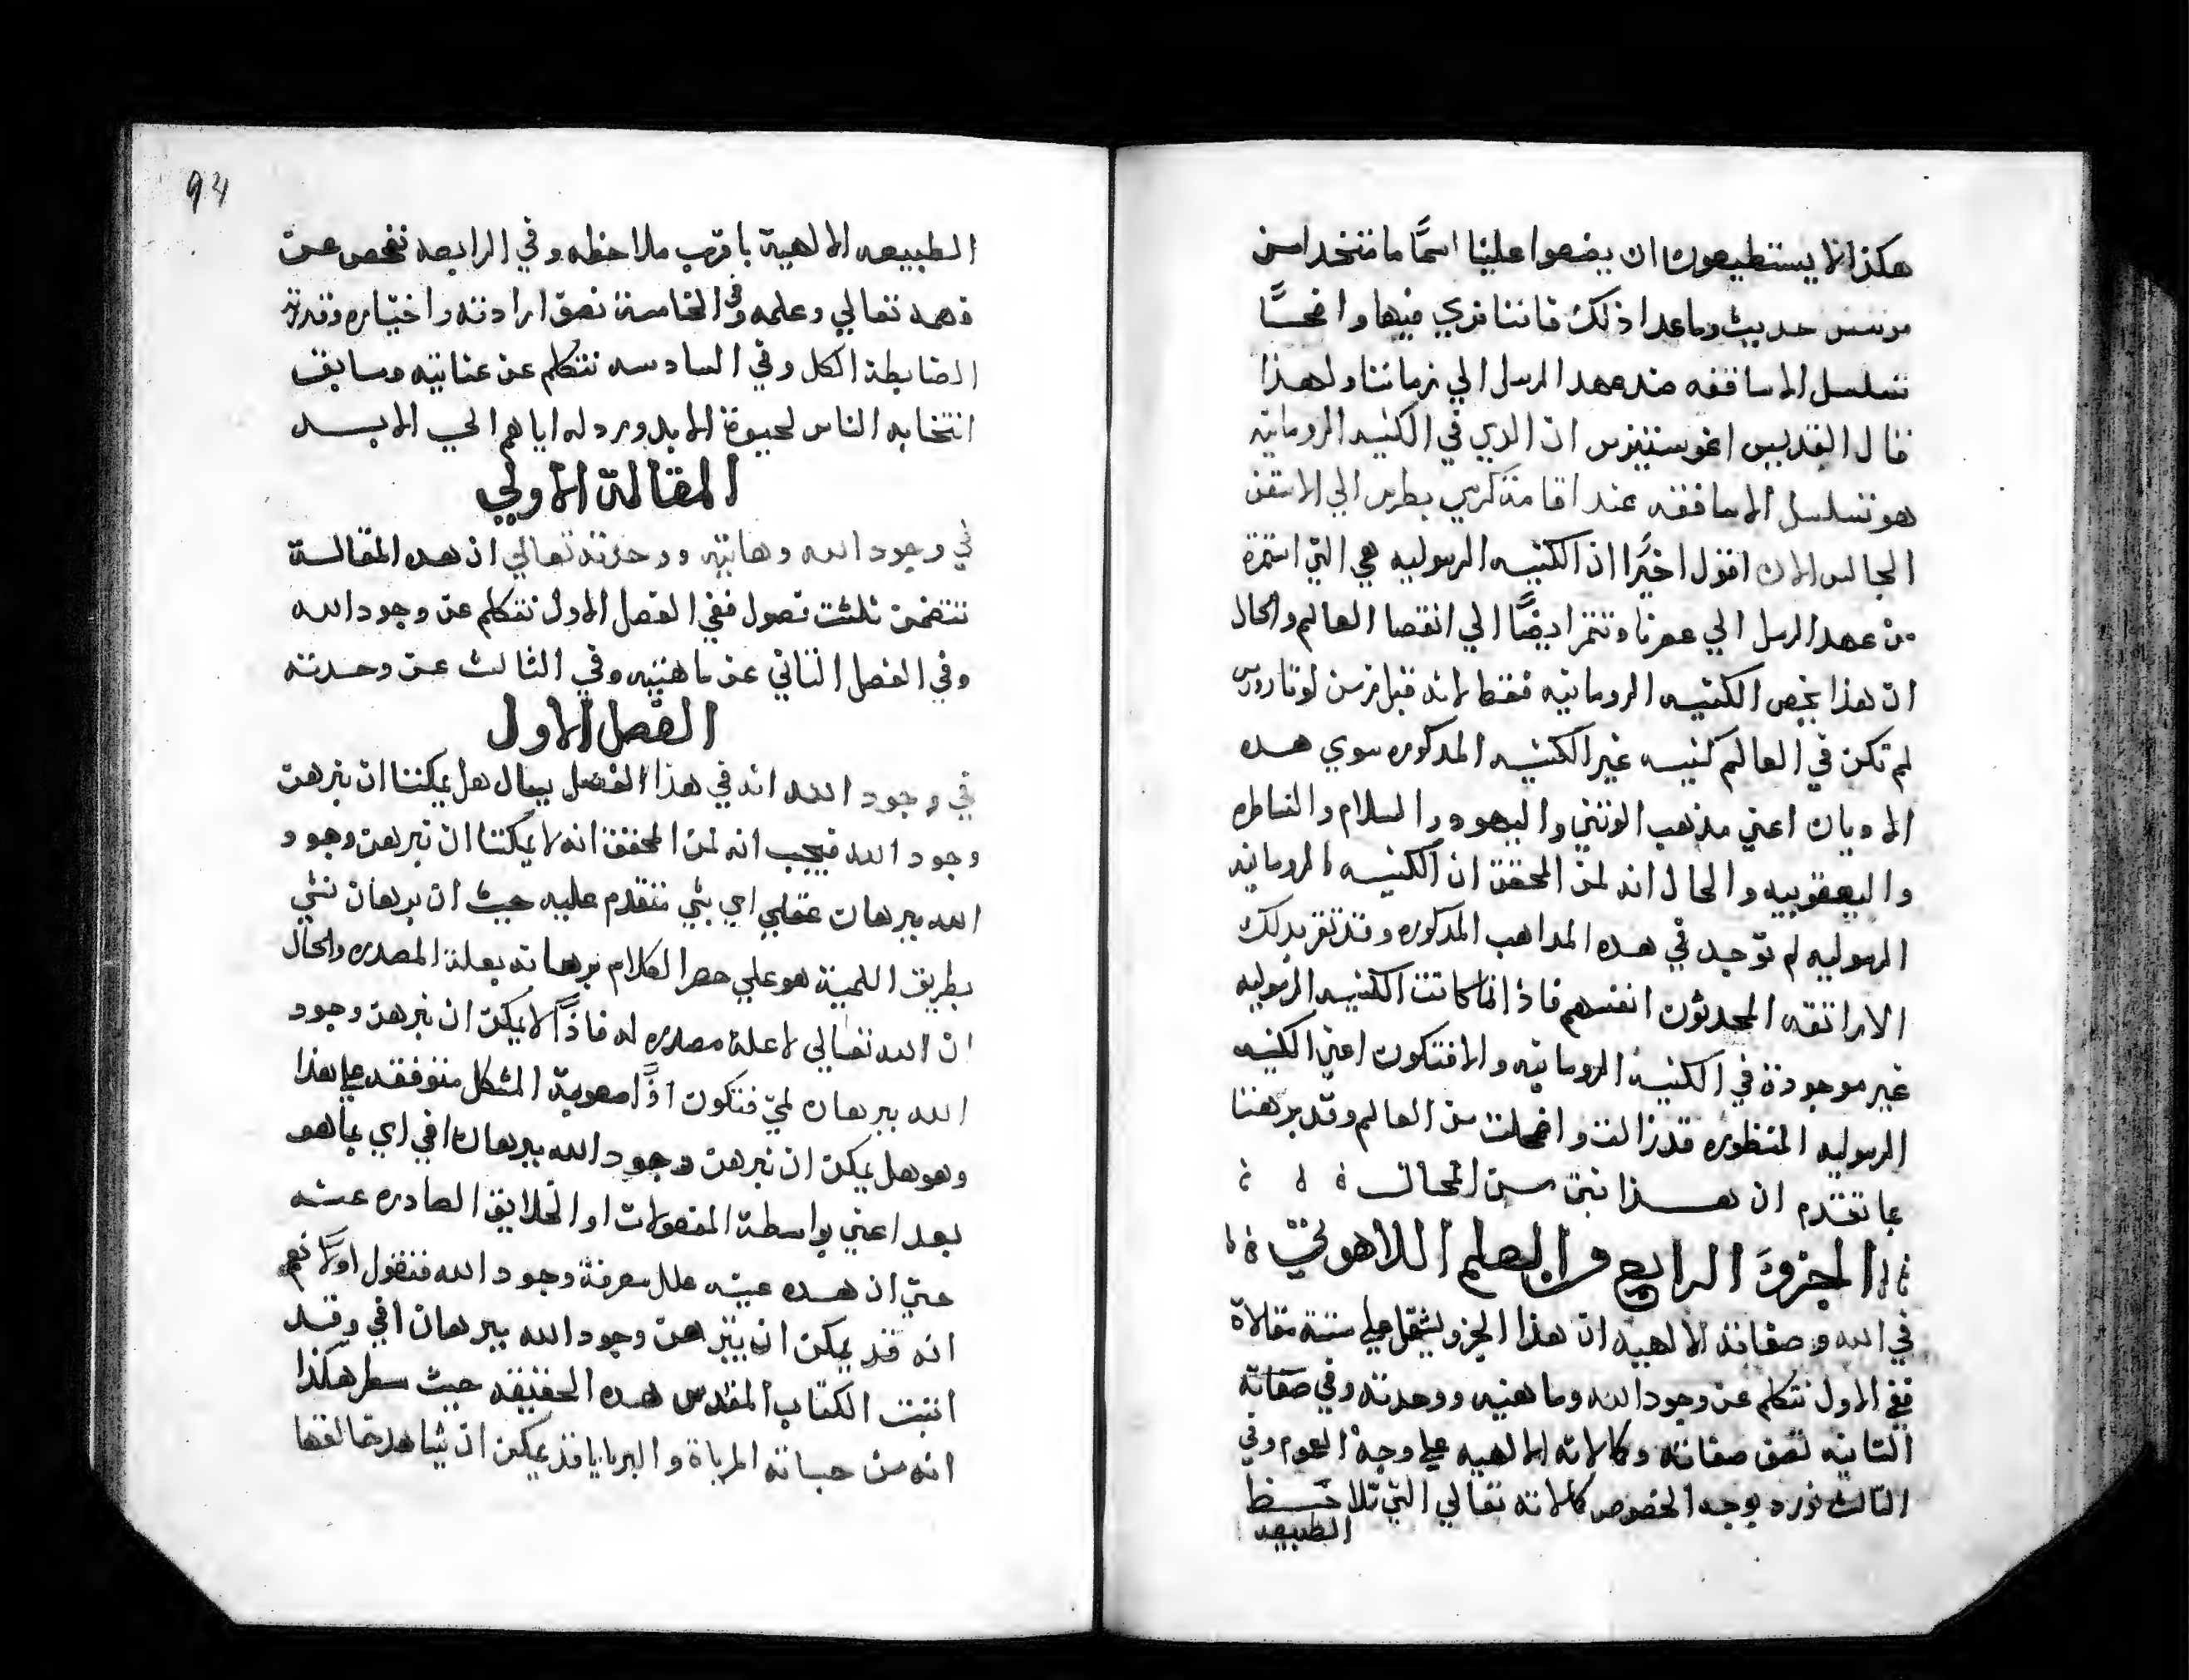 هكذا لا يستطيعون ان يضعوا علينا اسمًا ما متخدا من
موسس حديث وما عدا ذلك فاننا نري فيها واضحًا
تسلسل الاساقفه مند عهد الرسل الي زماننا ولهذا
قال القديس اغوستينوس ان الدي في الكنيسه الرومانيه
هو تسلسل الاساقفه عند اقامة كرسي بطرس الي الاسقف
الجالس الان اقول اخيرًا ان الكنيسه الرسوليه هي التي استمرة
من عهد الرسل الي عصرنا وتستمر ايضًا الي انقضا العالم والحال
ان هذا يخص الكنيسه الرومانيه فقط لانه قبل زمن لوتاروس
لم تكن في العالم كنيسه غير الكنيسه المدكوره سوي هده
الاديان اعني مذهب الوثني واليهود والسلام والنساطره
واليعقوبيه والحال انه لمن المحقق ان الكنيسه الرومانيه
الرسوليه لم توجد في هده المداهب المدكوره وقد تقر بدلك
الاراتقه المحدثون انفسهم فاذا لما كانت الكنيسه الرسوليه
غير موجودة في الكنيسه الرومانيه والا فتكون اعني الكنيسه
الرسوليه المنظوره قد زالت واضمحلت من العالم وقد برهنا
بما تقدم ان هذا من المحال
الجزو الرابع من العلم اللاهوتي
في الله وصفاته الالهيه ان هذا الجزو يشتمل علي ستة مقالاة
ففي الاول نتكلم عن وجود الله وماهيته ووحدته وفي
الثانيه نصف صفاته وكمالاته الالهيه علي وجه العموم وفي
الثالث نورد بوجه الخصوص كمالاته تعالي التي تلاحظ
الطبيعه
94
الطبيعه الالهية باقرب ملاحظه وفي الرابعه نفحص عن
فهمه تعالي وعلمه وفي الخامسة نصف ارادته واختياره وقدرته
الضابطة الكل وفي السادسه نتكلم عن عنايته وسابق
انتخابه الناس لحيوة الابد ورد له اياهم الي الابد
المقالة الاولي
في وجود الله وماهيته ووحدته تعالي ان هده المقالة
تتضمن ثلثت فصول ففي الفصل الاول نتكلم عن وجود الله
وفي الفصل الثاني عن ماهيته وفي الثالث عن وحدته
الفصل الاول
في وجود الله انه في هذا الفصل يسال هل يمكننا ان نبرهن
وجود الله فيجب انه لمن المحقق انه لا يمكننا ان نبرهن وجود
الله ببرهان عقلي اي بشي متقدم عليه حيث ان برهان شي
بطريق اللمية هو علي حصر الكلام برهانه بعلة المصدره والحال
ان الله تعالي لا علة مصدره له فاذًا لا يمكن ان نبرهن وجود
الله ببرهان لمي فتكون اذًا صعوبة المشكل متوقفه علي هذا
وهو هل يمكن ان نبرهن وجود الله ببرهان اني اي بما هو
بعد اعني بواسطة المفعولات او الخلايق الصادره عنه
حتي ان هده عينه علل معرفة وجود الله فنقول اولًا نعم
انه قد يمكن ان يتبرهن وجود الله ببرهان اني وقد
اثبت الكتاب المقدس هده الحقيقه حيث سطر هكذا
انه من المرباة والبرايا قد يمكن ان يشاهد خالقها